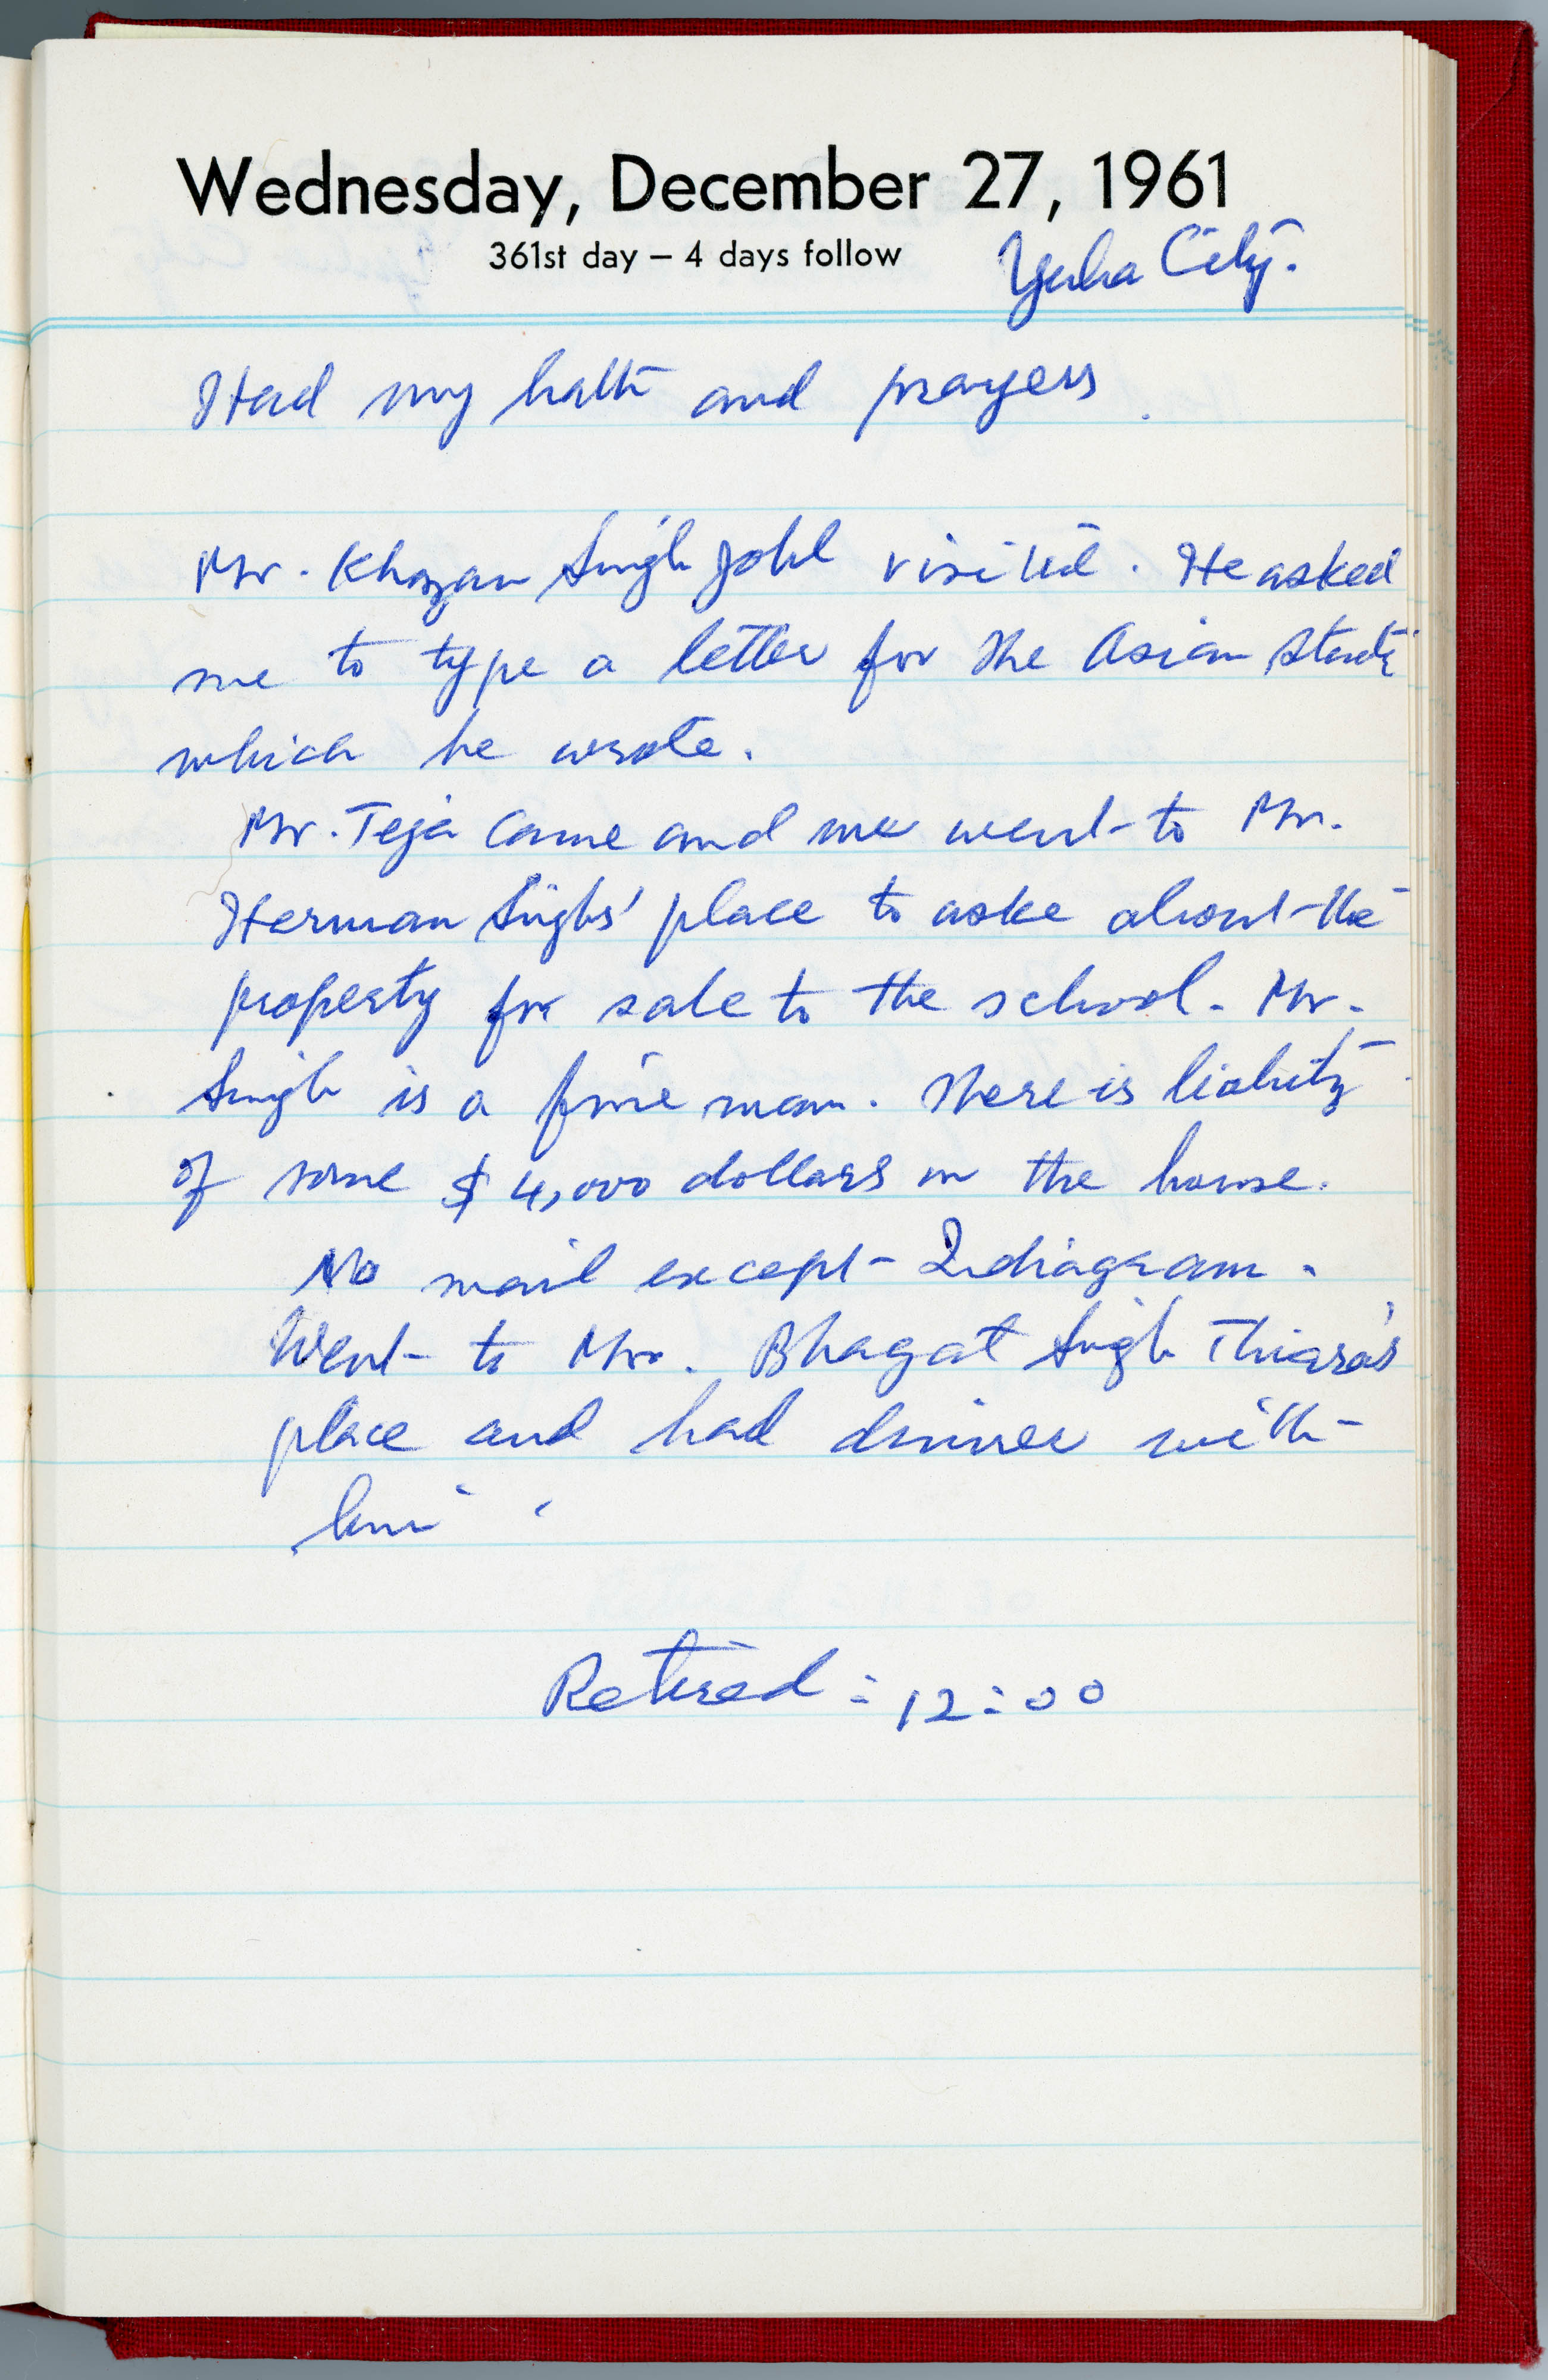 Wednesday, December 27, 1961
361st day – 4 days follow
Yuba City.
Had my bath and prayers.
Mr. Khazan Singh Johl visited. He asked
me to type a letter for the Asian
which he wrote.
Mr. Teja came and we went to Mr.
Herman Singhs' place to aske about the
property for sale to the school. Mr.
Singh is a fine man. There is liability
of some $4,000 dollars on the house.
No mail except Indiagram.
Went to Mr. Bhagat Singh Thiara's
place and had dinner with
him.
Retired : 12:00